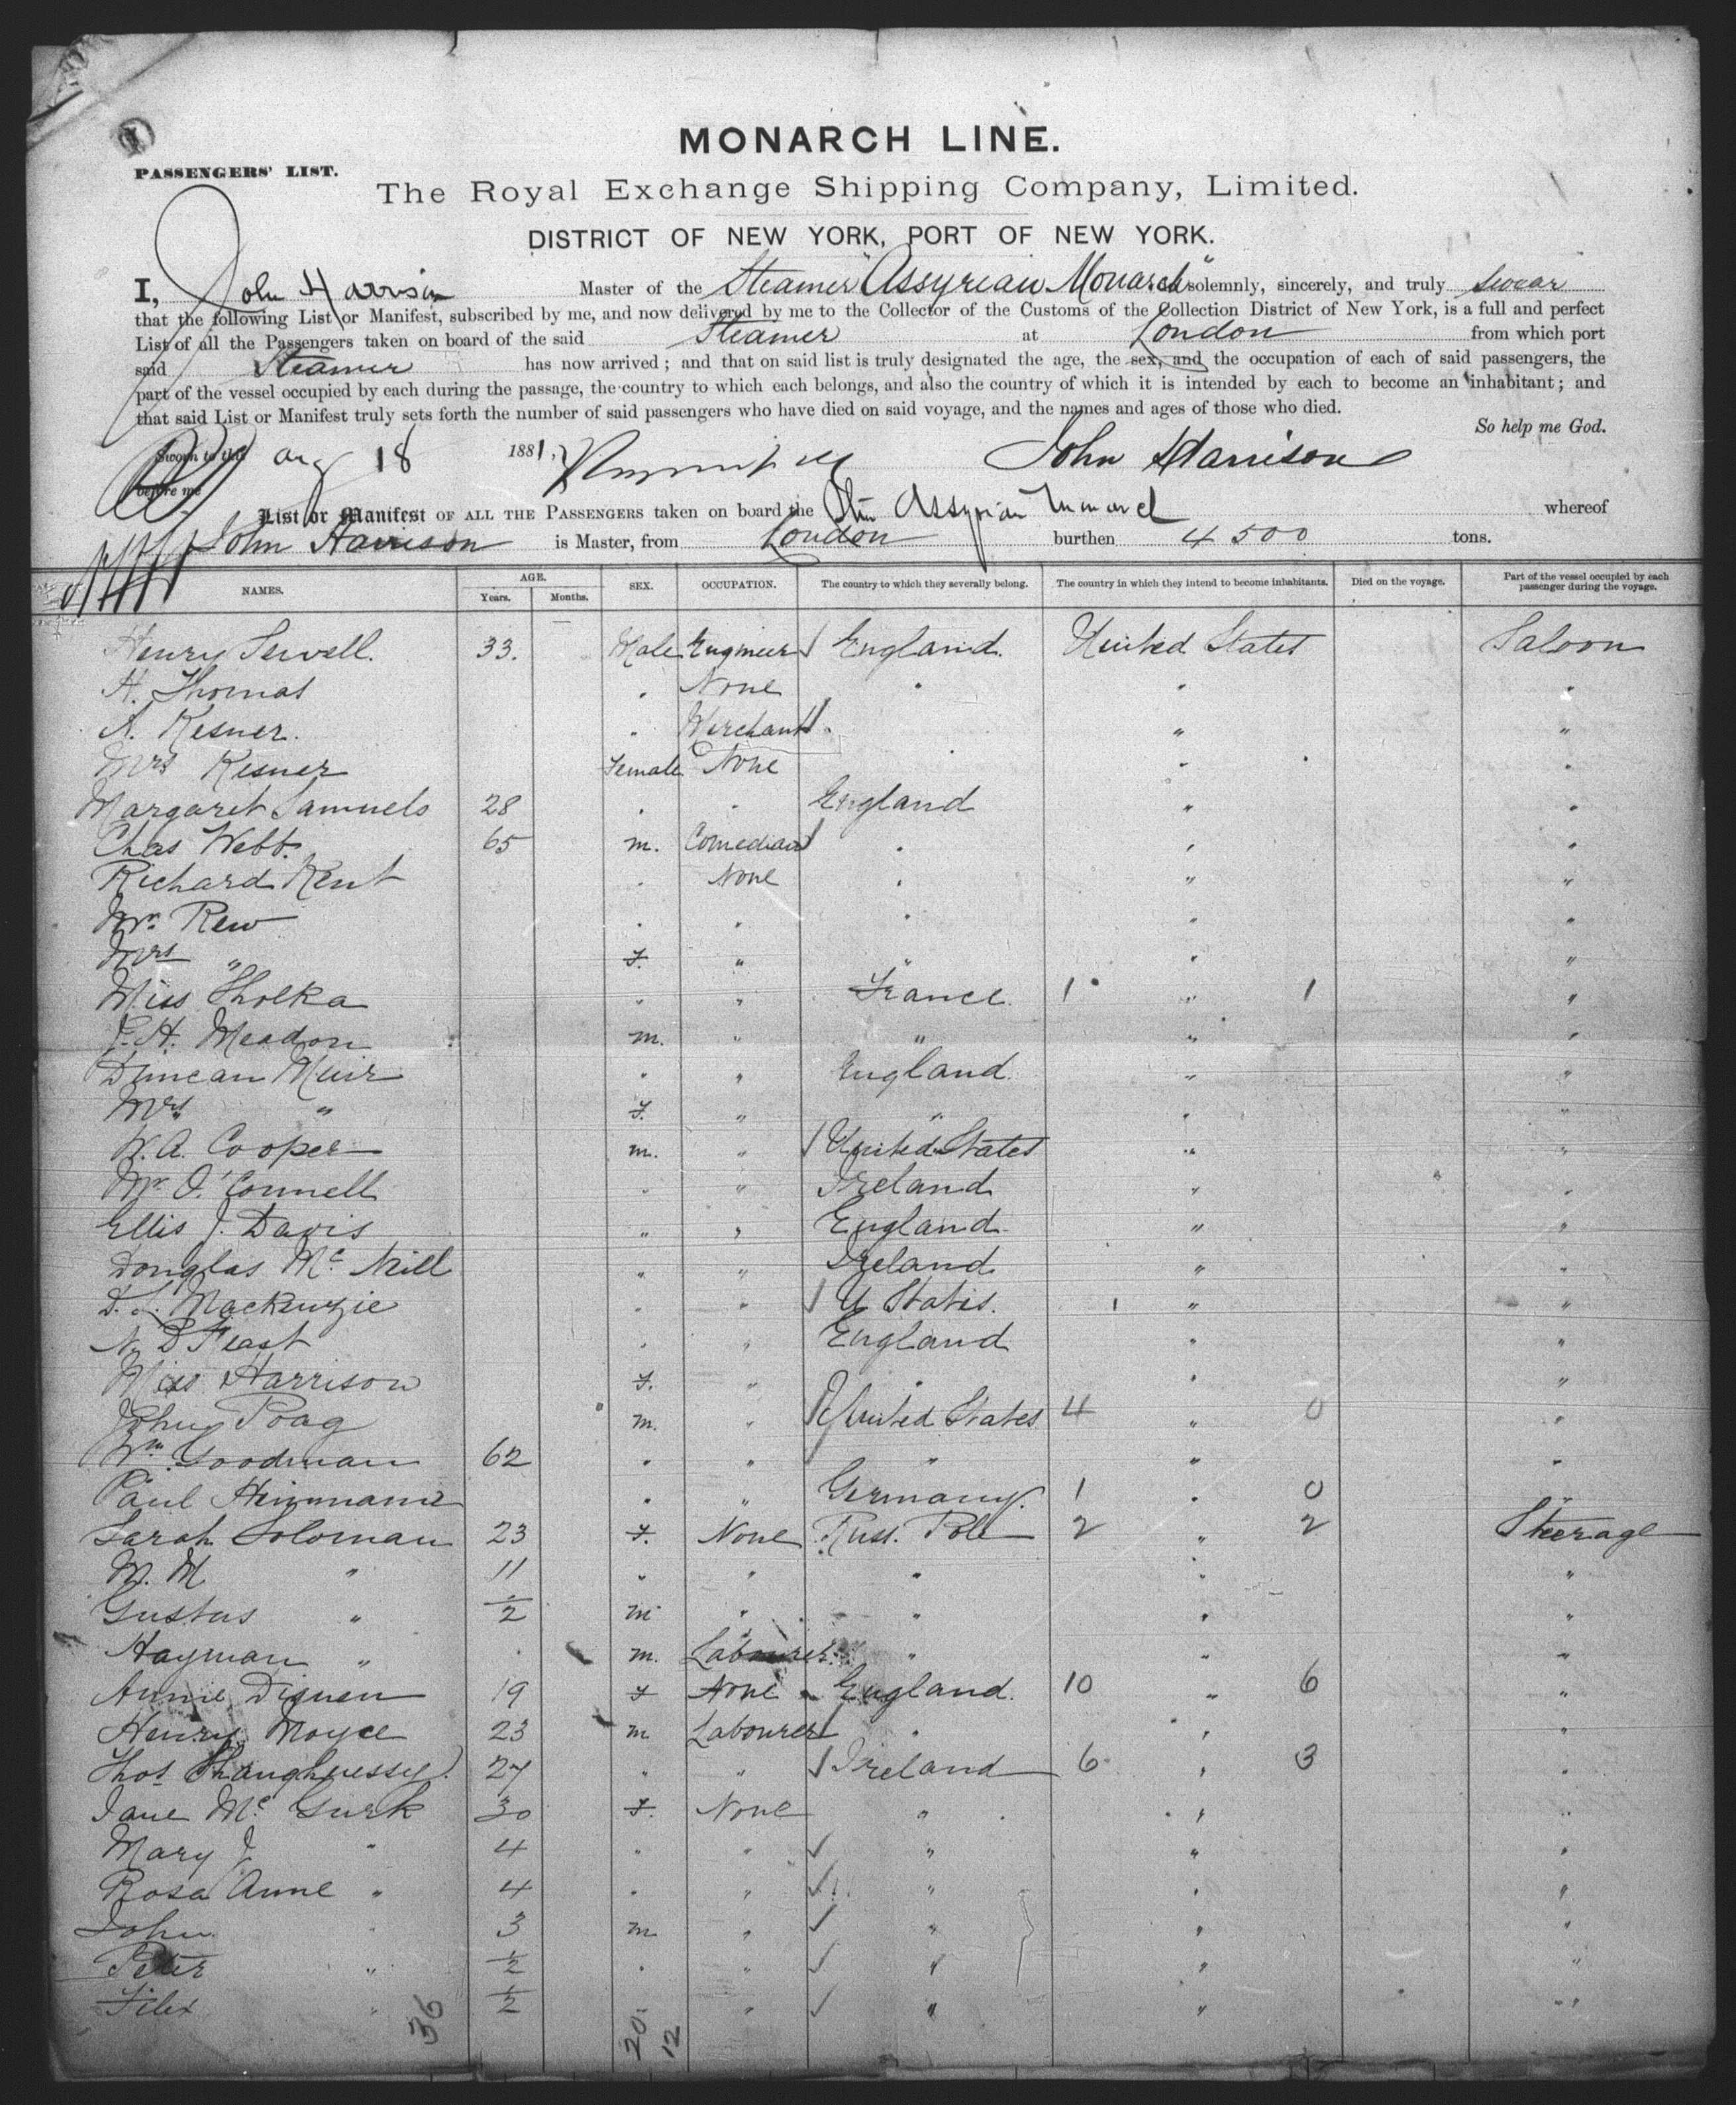 1
MONARCH LINE.
PASSENGERS' LIST.
The Royal Exchange Shipping Company, Limited.
DISTRICT OF NEW YORK, PORT OF NEW YORK.
I, John Harrison Master of the Steamer "Assyrian Monarch" solemnly, sincerely, and truly swear
that the following List or Manifest, subscribed by me, and now delivered by me to the Collector of the Customs of the Collection District of New York, is a full and perfect
List of all the Passengers taken on board of the said Steamer at London from which port
said Steamer has now arrived; and that on said list is truly designated the age, the sex, and the occupation of each of said passengers, the
part of the vessel occupied by each during the passage, the country to which each belongs, and also the country of which it is intended by each to become an inhabitant; and
that said List or Manifest truly sets forth the number of said passengers who have died on said voyage, and the names and ages of those who died.
So help me God.
Sworn to this Aug 18 1881, John Harrison
before me
List or Manifest OF ALL THE PASSENGERS taken on board the Str Assyrian Monarch whereof
John Harrison is Master, from London burthen 4500 tons.
NAMES. AGE. Years. Months. SEX. OCCUPATION. The country to which they severally belong. The country in which they intend to become inhabitants. Died on the voyage. Part of the vessel occupied by each passenger during the voyage.
Henry Sewell. 33. Male Engineer England. United States Saloon
H. Thomas " None " " "
A. Kesner. " Merchant " " "
Mrs Kesner Female None " " "
Margaret Samuels 28 " " England " "
Chas Webb. 65 m. Comedian " " "
Richard Kent " None " " "
Mr. Rew " " " " "
Mrs " F. " " " "
Miss Tholka " " France. 1 " 1 "
H. Meadon m. " " " "
Duncan Muir " " England. " "
Mrs " F. " " " "
W. A. Cooper m. " United States " "
Mr O'Connell " " Ireland " "
Ellis J. Davis " " England " "
Douglas Mc Neill " " Ireland " "
D. L. Mackenzie " " U States. " "
N. D Feast " " England " "
Miss Harrison F. " " " "
John Poag m. " United States 4 " 0 "
Wm Goodman 62 " " " " "
Paul Heinmann " " Germany. 1 " 0 "
Sarah Soloman 23 F. None Russ. Pole 2 " 2 Steerage
M. M " 11 " " " " "
Gustus " 1/2 m " " " "
Hayman " m. Labourer " " "
Annie Dignen 19 F None England. 10 " 6 "
Henry Moyce 23 m Labourer " " "
Thos Shaughnessy 27 " " Ireland 6 " 3 "
Jane Mc Gurk 30 F. None " " "
Mary J " 4 " " " " "
Rosa Anne " 4 " " " " "
John " 3 m " " " "
Peter " 1/2 " " " " "
Felix " 1/2 " " " "
36 20 12